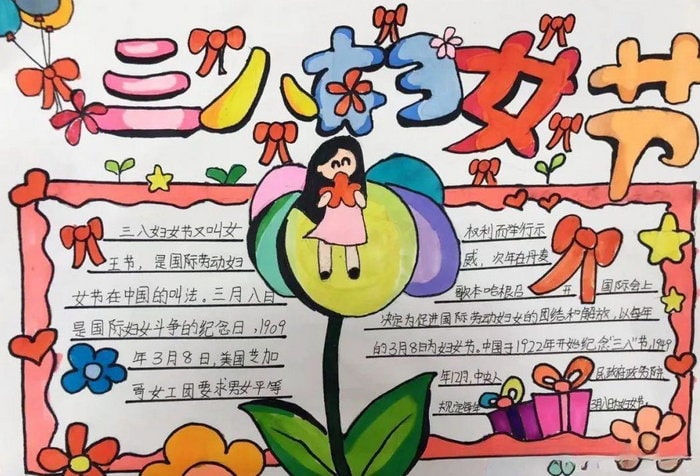 三八妇女节
三八妇女节又叫女
王节，是国际劳动妇
女节在中国的叫法。三月八日
是国际妇女斗争的纪念日，1909
年3月8日，美国芝加
哥女工团要求男女平等
权利而举行示
威，次年在丹麦
歌本哈根召开国际会上
决定为促进国际劳动妇女的团结和解放，以每年
的3月8日为妇女节。中国于1922年开始纪念"三八"节，1949
年12月，中央人民政府政务院
规定每年3月八日为妇女节。